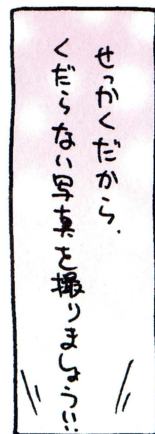 せっかくだから、
くだらない写真を撮りましょう!!